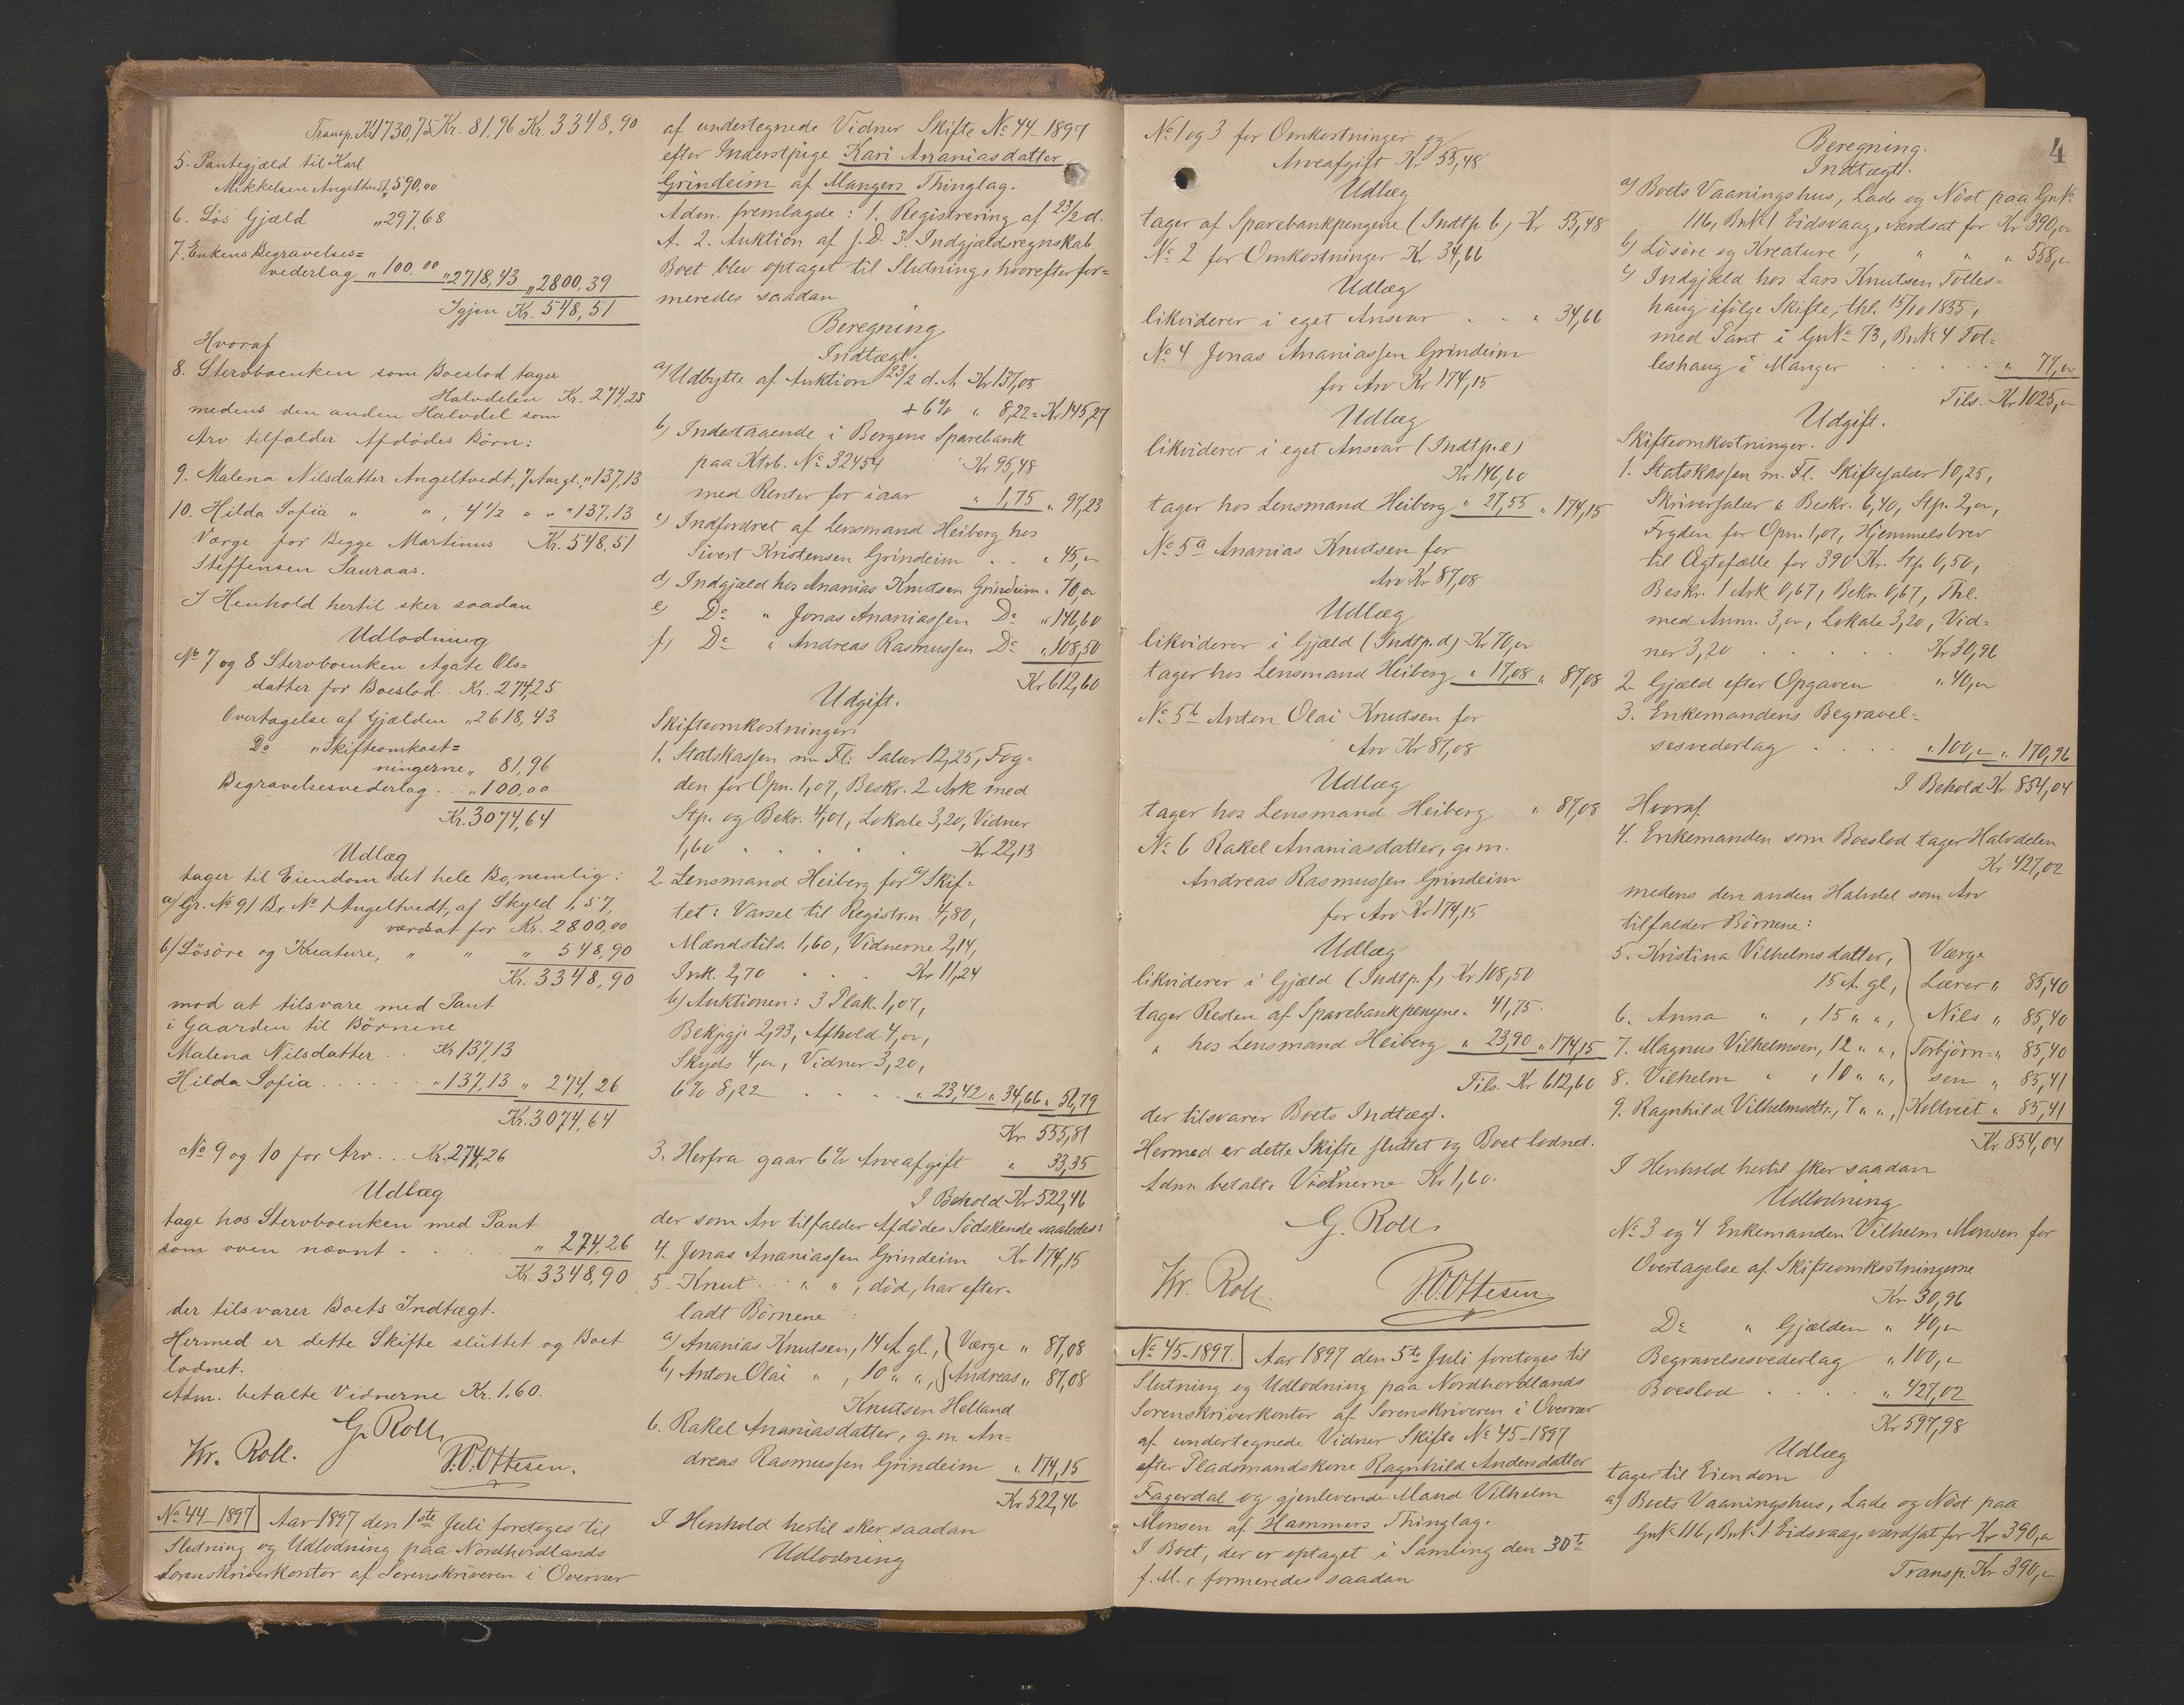 Transp. Kr. 1730,75 Kr. 81,96 Kr. 3348,90
5. Pantegjæld til Karl
Mikkelsen Angeltvedt „ 590,00
6. Løs Gjæld „ 297,68
7. Enkens Begravelses=
vederlag „ 100,00 „ 2718,43 „ 2800,39
Igjen Kr. 548,51
Hvoraf
8. Stervboenken som Boeslod tager
Halvdelen Kr. 274,25
medens den anden Halvdel som
Arv tilfalder Afdødes Børn:
9. Malena Nilsdatter Angeltvedt, 7 Aar gl. „ 137,13
10. Hilda Sofia „ „ , 4 1/2 „ „ „ 137,13
Værge for Begge Martinus Kr. 548,51
Steffensen Sauraas.
I Henhold hertil sker saadan
Udlodning
No 7 og 8 Stervboenken Agate Ols=
datter for Boeslod.. Kr. 274,25
Overtagelse af Gjælden „ 2618,43
Do „ Skifteomkost=
ningerne „ 81,96
Begravelsesvederlag : .. „ 100,00
Kr. 3074,64
Udlæg
tager til Eiendom det hele Bo, nemlig:
a) Gr. No 91 Br. No 1 Angeltvedt, af Skyld 1,57,
værdsat for Kr. 2800,00
b) Løsøre og Kreature, „ „ „ 548,90
Kr. 3348,90
mod at tilsvare med Pant
i Gaarden til Børnene
Malena Nilsdatter .. Kr 137,13
Hilda Sofia . . . . . . „ 137,13 „ 274,26
Kr. 3074,64
No 9 og 10 for Arv... Kr. 274,26
Udlæg
tage hos Stervboenken med Pant
som oven nævnt - . . . „ 274,26
Kr. 3348,90
der tilsvarer Boets Indtægt.
Hermed er dette Skifte sluttet og Boet
lodnet.
Adm. betalte Vidnerne Kr. 1.60.
G. Roll
Kr. Roll. P.O. Ottesen.
No 44-1897 Aar 1897 den 1ste Juli foretoges til
Slutning og Udlodning paa Nordhordlands
Sorenskriverkontor af Sorenskriveren i Overvær
af undertegnede Vidner Skifte No 44-1897
efter Inderstpige Kari Ananiasdatter
Grindeim af Mangers Thinglag.
Adm. fremlagde: 1. Registrering af 23/2 d.
A. 2. Auktion af s. D. 3. Indgjældsregnskab.
Boet blev optaget til Slutning, hvorefter for=
meredes saadan
Beregning
Indtægt.
a) Udbytte af Auktion 23/2 d. A. Kr 137,05
+ 6% „ 8,22 = Kr 145,27
b) Indestaaende i Bergens Sparebank
paa Ktrb. No 32454 Kr 95,48
med Renter for iaar „ 1,75 „ 97,23
c) Indfordret af Lensmand Heiberg hos
Sivert Kristensen Grindeim . . „ 45,„
d) Indgjæld hos Ananias Knutsen Grindeim „ 70,„
e) Do „ Jonas Ananiassen Do „ 146,60
f) Do „ Andreas Rasmussen Do „ 108,50
Kr 612,60
Udgift.
Skifteomkostninger.
1. Statskassen m. Fl: Salær 12,25, Fog=
den for Opn. 1,07, Beskr. 2 Ark med
Stp. og Bekr. 4,01, Lokale 3,20, Vidner
1,60 . . . . . Kr 22,13
2. Lensmand Heiberg for a) Skif=
tet: Varsel til Registr.n 4,80,
Mændstils. 1,60, Vidnerne 2,14,
Ink. 2,70 . . . Kr 11,24
b) Auktionen: 3 Plak. 1,07,
Bekjgj. 2,93, Afhold 4,„,
Skyds 4,„, Vidner 3,20,
6% 8,22 . . . . „ 23,42 „ 34,66 „ 56,79
Kr 555,81
3. Herfra gaar 6% Arveafgift „ 33,35
I Behold Kr 522,46
der som Arv tilfalder Afdødes Sødskende saaledes:
4. Jonas Ananiassen Grindeim Kr 174,15
5. Knut „ „ , død, har efter=
ladt Børnene :
a) Ananias Knutsen, 14 A. gl, Værge „ 87,08
b) Anton Olai „ , 10 „ „, Andreas „ 87,08
Knutsen Helland
6. Rakel Ananiasdatter, g. m. An=
dreas Rasmussen Grindeim „ 174,15
Kr 522,46
I Henhold hertil sker saadan
Udlodning
No 1 og 3 for Omkostninger og
Arveafgift Kr 55,48
Udlæg
tager af Sparebankpengene (Indtp. b) Kr 55,48
No 2 for Omkostninger Kr 34,66
Udlæg
likviderer i eget Ansvar . . „ 34,66
No 4 Jonas Ananiassen Grindeim
for Arv Kr 174,15
Udlæg
likviderer i eget Ansvar (Indtp. e)
Kr 146,60
tager hos Lensmand Heiberg „ 27,55 „ 174,15
No 5a Ananias Knutsen for
Arv Kr 87,08
Udlæg
likviderer i Gjæld (Indtp. d) Kr 70,„
tager hos Lensmand Heiberg „ 17,08 „ 87,08
No 5b Anton Olai Knutsen for
Arv Kr 87,08
Udlæg
tager hos Lensmand Heiberg „ 87,08
No 6 Rakel Ananiasdatter, g. m.
Andreas Rasmussen Grindeim
for Arv Kr 174,15
Udlæg
likviderer i Gjæld (Indtp. f) Kr 108,50
tager Resten af Sparebankpengene „ 41,75
„ hos Lensmand Heiberg „ 23,90 „ 174,15
Tils. Kr 612,60
der tilsvarer Boets Indtægt.
Hermed er dette Skifte sluttet og Boet lodnet.
Adm. betalte Vidnerne Kr 1,60.
G. Roll
Kr. Roll. P.O. Ottesen
No 45-1897. Aar 1897 den 5te Juli foretoges til
Slutning og Udlodning paa Nordhordlands
Sorenskriverkontor af Sorenskriveren i Overvær
af undertegnede Vidner Skifte No 45-1897
efter Pladsmandskone Ragnhild Andersdatter
Fagerdal og gjenlevende Mand Vilhelm
Monsen af Hammers Thinglag.
I Boet, der er optaget i Samling den 30te
f. M., formeredes saadan
4
Beregning.
Indtægt.
a) Boets Vaaningshus, Lade og Nøst paa Gn No
116, Bn No 1 Eidsvaag, værdsat for Kr 390,„
b) Løsøre og Kreature, „ „ „ 558,„
c) Indgjæld hos Lars Knutsen Tolles=
haug ifølge Skifte, thl. 15/10 1855,
med Pant i Gn No 73, Bn No 4 Tol=
leshaug i Manger . . . . . „ 77,„
Tils. Kr 1025,„
Udgift.
Skifteomkostninger.
1. Statskassen m. Fl. Skiftesalær 10,25,
Skriversalær a Beskr. 6,40, Stp. 2,„,
Fogden for Opn. 1,07, Hjemmelsbrev
til Ægtefælle for 390 Kr. Stp. 0,50,
Beskr. 1 Ark 0,67, Bekr. 0,67, Thl.
med Anm. 3,„, Lokale 3,20, Vid=
ner 3,20 . . . . . . Kr 30,96
2. Gjæld efter Opgaven „ 40,„
3. Enkemandens Begravel=
sesvederlag . . . . „ 100,„ „ 170,96
I Behold Kr 854,04
Hvoraf
4. Enkemanden som Boeslod tager Halvdelen
Kr 427,02
medens den anden Halvdel som Arv
tilfalder Børnene:
5. Kristina Vilhelmsdatter, Værge
15 A. gl, Lærer „ 85,40
6. Anna „ , 15 „ „, Nils „ 85,40
7. Magnus Vilhelmsen, 12 „ „, Torbjørn= „ 85,40
8. Vilhelm „ , 10 „ „, sen „ 85,41
9. Ragnhild Vilhelmsdtr., 7 „ „, Koltveit „ 85,41
Kr 854,04
I Henhold hertil sker saadan
Udlodning
No 3 og 4 Enkemanden Vilhelm Monsen for
Overtagelse af Skifteomkostningerne
Kr. 30,96
Do „ Gjælden „ 40,„
Begravelsesvederlag „ 100,„
Boeslod . . . . „ 427,02
Kr 597,98
Udlæg
tager til Eiendom
a) Boets Vaaningshus, Lade og Nøst paa
Gn No 116, Bn No 1 Eidsvaag, værdsat for Kr 390,„
Transp. Kr 390,„